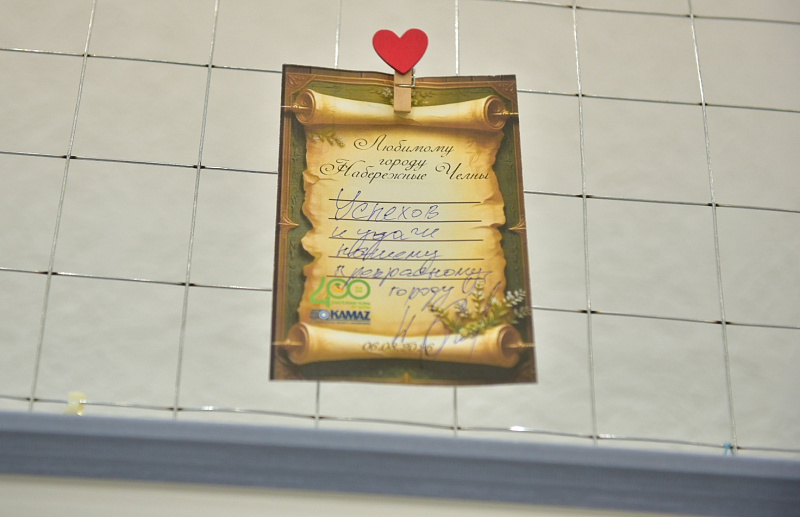 Любимому
городу
Набережные Челны
Успехов
и удачи
нашему
прекрасному
городу
400
KAMAZ